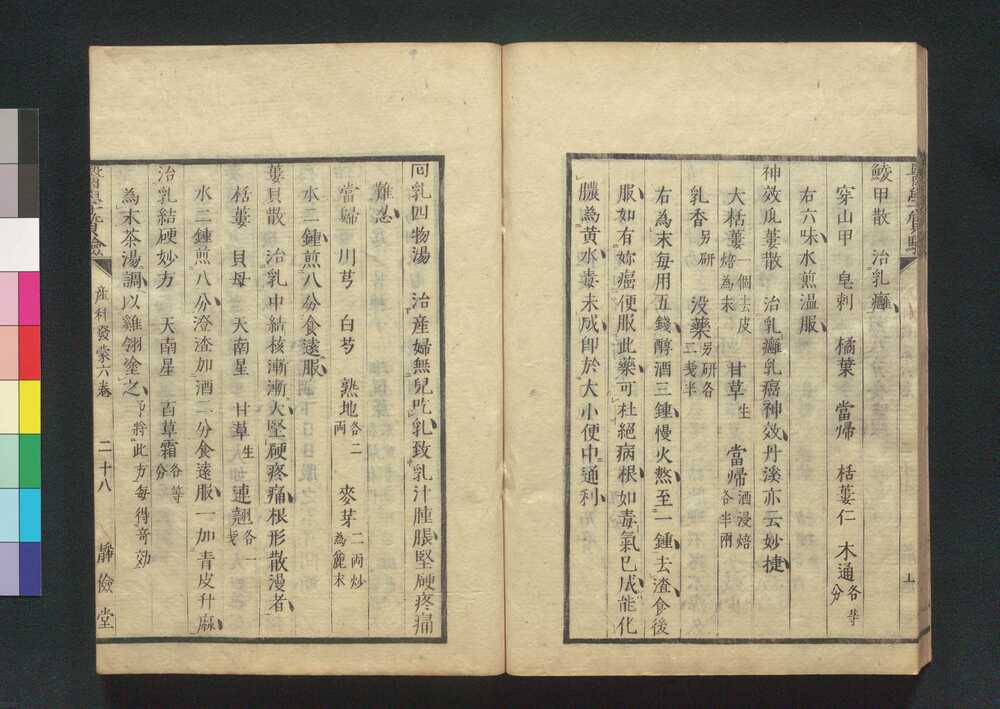 鯪甲散　治乳癰
穿山甲　皂刺　橘葉　當帰　栝蔞仁　木通各等分
右六味水煎温服
神效瓜蔞散　治乳癰乳癌神效丹溪亦云妙捷
大栝蔞一個去皮焙為末　甘草生　當帰酒浸焙各半兩
乳香另研　没藥另研各二戔半
右為末毎用五錢醇酒三鍾慢火熬至一鍾去渣食後
服如有妳癌便服此藥可杜絕病根如毒氣已成能化
膿為黃水毒未成卽於大小便中通利
回乳四物湯　治産婦無兒吃乳致乳汁腫脹堅硬疼痛
難忍
當歸　川芎　白芍　熟地各二兩　麥芽二兩炒為麁末
水二鍾煎八分食遠服
蔞貝散　治乳中結核漸漸大堅硬疼痛根形散漫者
栝蔞　貝母　天南星　甘草生　連翹各一戔
水二鍾煎八分澄渣加酒二分食遠服一加青皮升麻
治乳結硬妙方　天南星　百草霜各等分
為末茶湯調以雞翎塗之予將此方毎得奇効
産科發蒙六卷　二十八　靜儉堂